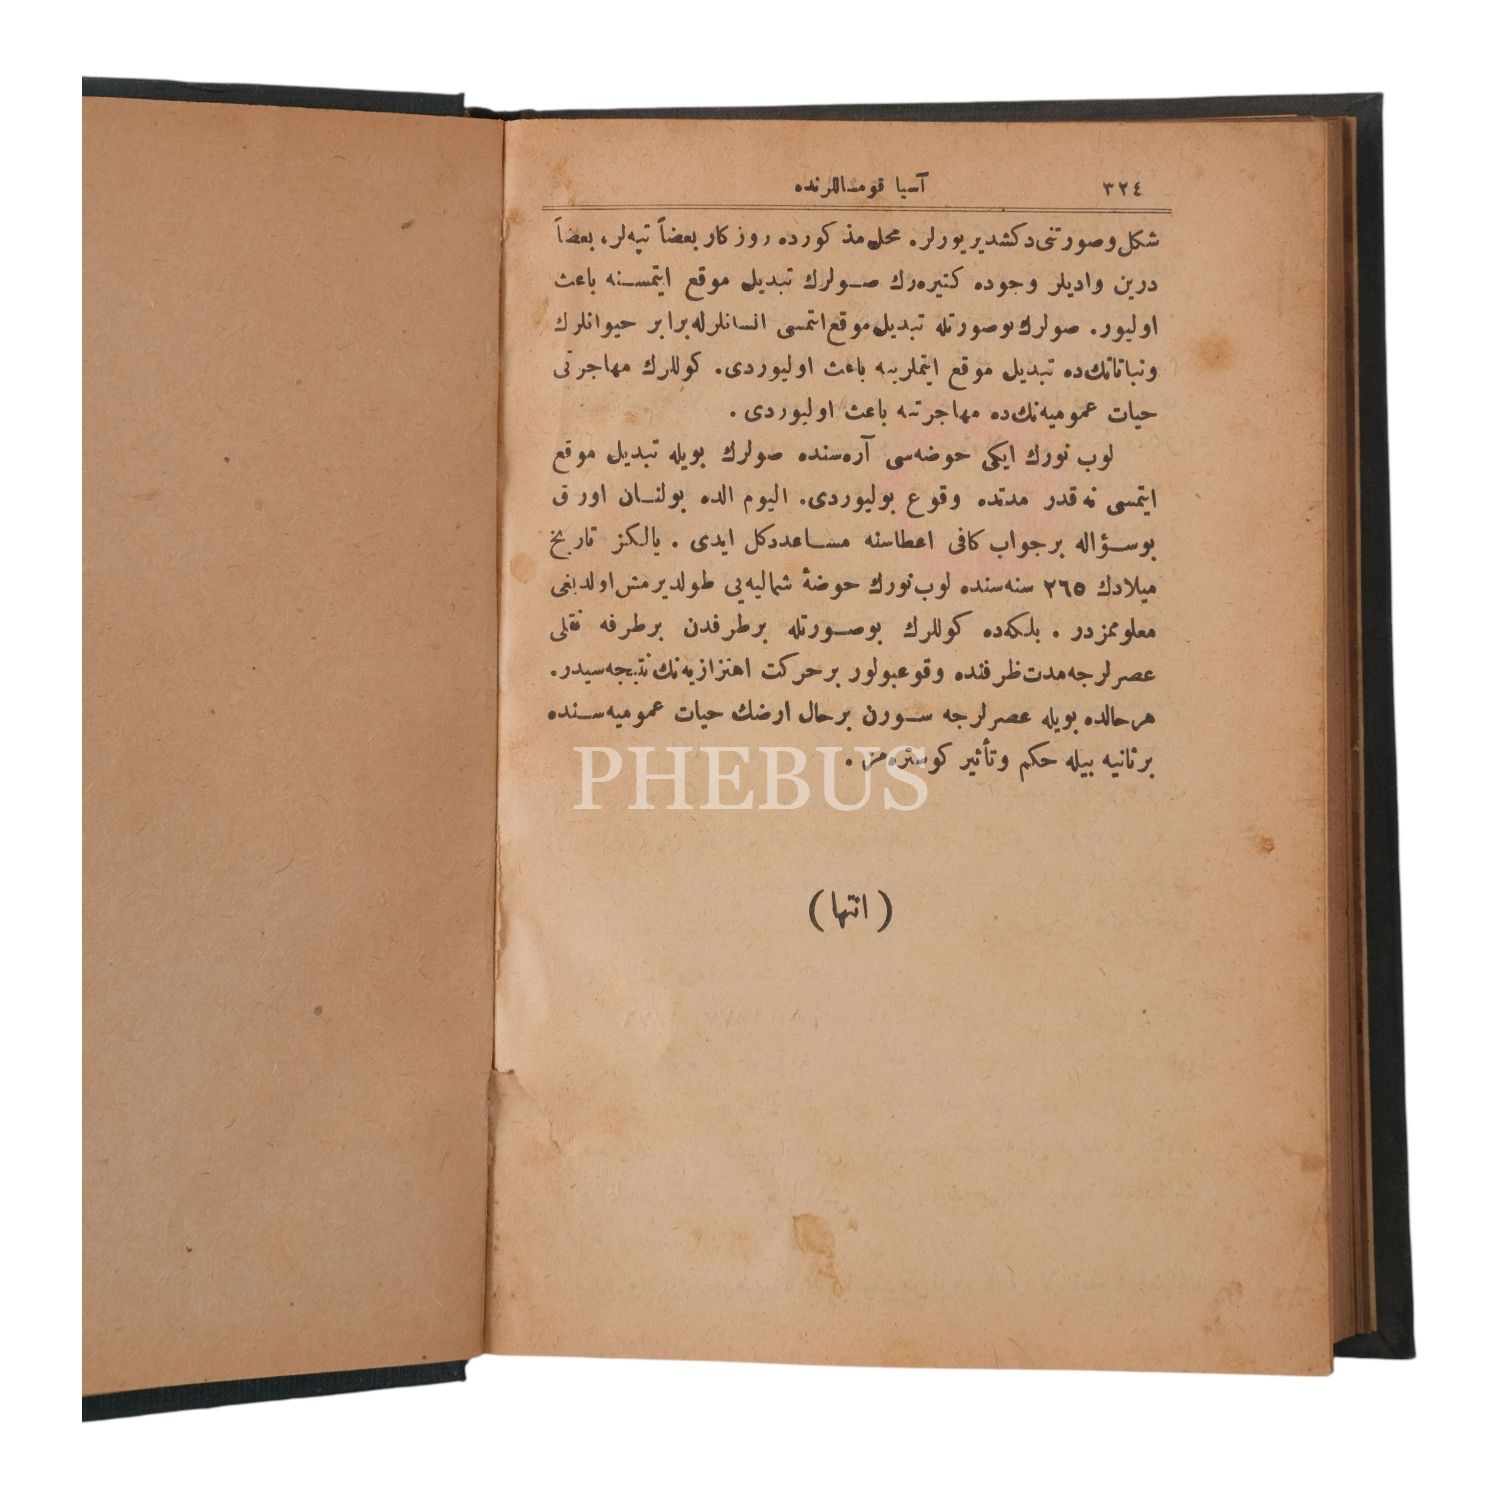 ٣٢٤ آسيا قومساللرنده
شكل وصورتنى دكشديريورلر. محل مذكورده روزكار بعضاً تپه‌لر، بعضاً
درين واديلر وجوده كتيره‌رك صولرك تبديل موقع ايتمسنه باعث
اوليور. صولرك بوصورتله تبديل موقع ايتمسى انسانلرله برابر حيوانلرك
ونباتاتك‌ده تبديل موقع ايتملرينه باعث اوليوردى. كوللرك مهاجرتى
حيات عموميه‌نك‌ده مهاجرتنه باعث اوليوردى.
لوب نورك ايكى حوضه‌سى آره‌سنده صولرك بويله تبديل موقع
ايتمسى نه‌قدر مدتده وقوع بوليوردى. اليوم الده بولنان اوراق
بوسؤاله برجواب كافى اعطاسنه مساعد دكل ايدى. يالكز تاريخ
ميلادك ٢٦٥ سنه‌سنده لوب‌نورك حوضهٔ شماليه‌يى طولديرمش اولديغى
معلوممزدر. بلكه‌ده كوللرك بوصورتله برطرفدن برطرفه نقلى
عصرلرجه مدت ظرفنده وقوعبولور برحركت اهتزازيه‌نك نتيجه‌سيدر.
هرحالده بويله عصرلرجه سورن برحال ارضك حيات عموميه‌سنده
برثانيه بيله حكم وتأثير كوستره‌مز.
PHEBUS
(انتها)